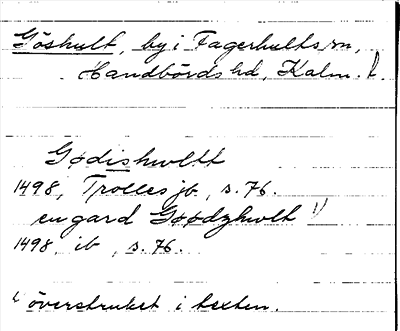 Göshult, by i Fagerhults sn,
Handbörds hd, Kalm. l.
Gødishwltt
1498, Trolles jb, s. 76.
en gard Goodzhwlt 1)
1498, ib, s. 76.
1) överstruket i texten.